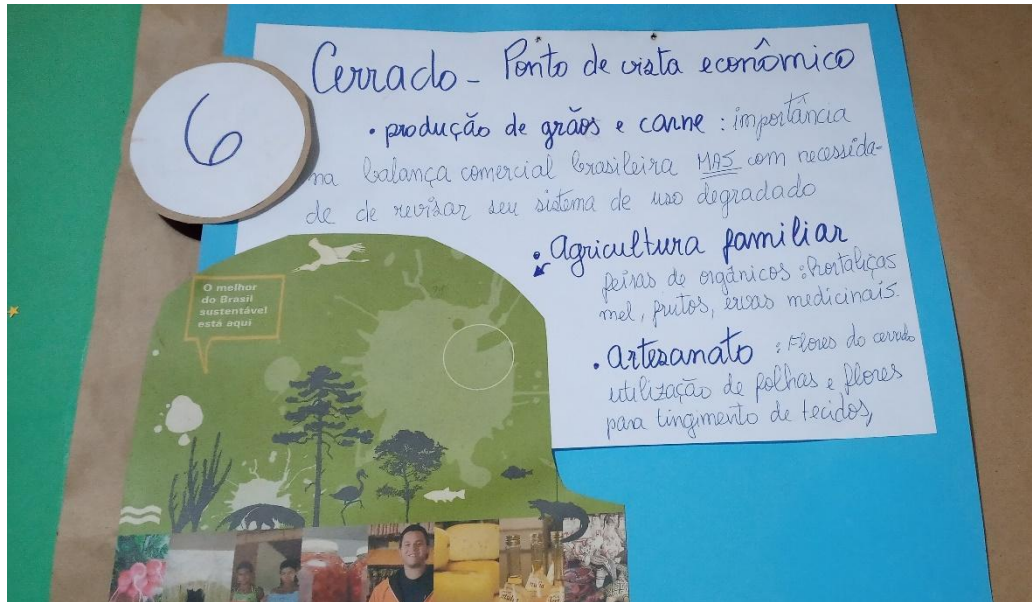 6
Cerrado - Ponto de vista econômico
• produção de grãos e carne : importância
na balança comercial brasileira MAS com necessida-
de de revisar seu sistema de uso degradado
• Agricultura familiar
feiras de orgânicos : hortaliças
mel, frutos, ervas medicinais.
• Artesanato : Flores do cerrado
utilização de folhas e flores
para tingimento de tecidos,
O melhor
do Brasil
sustentável
está aqui